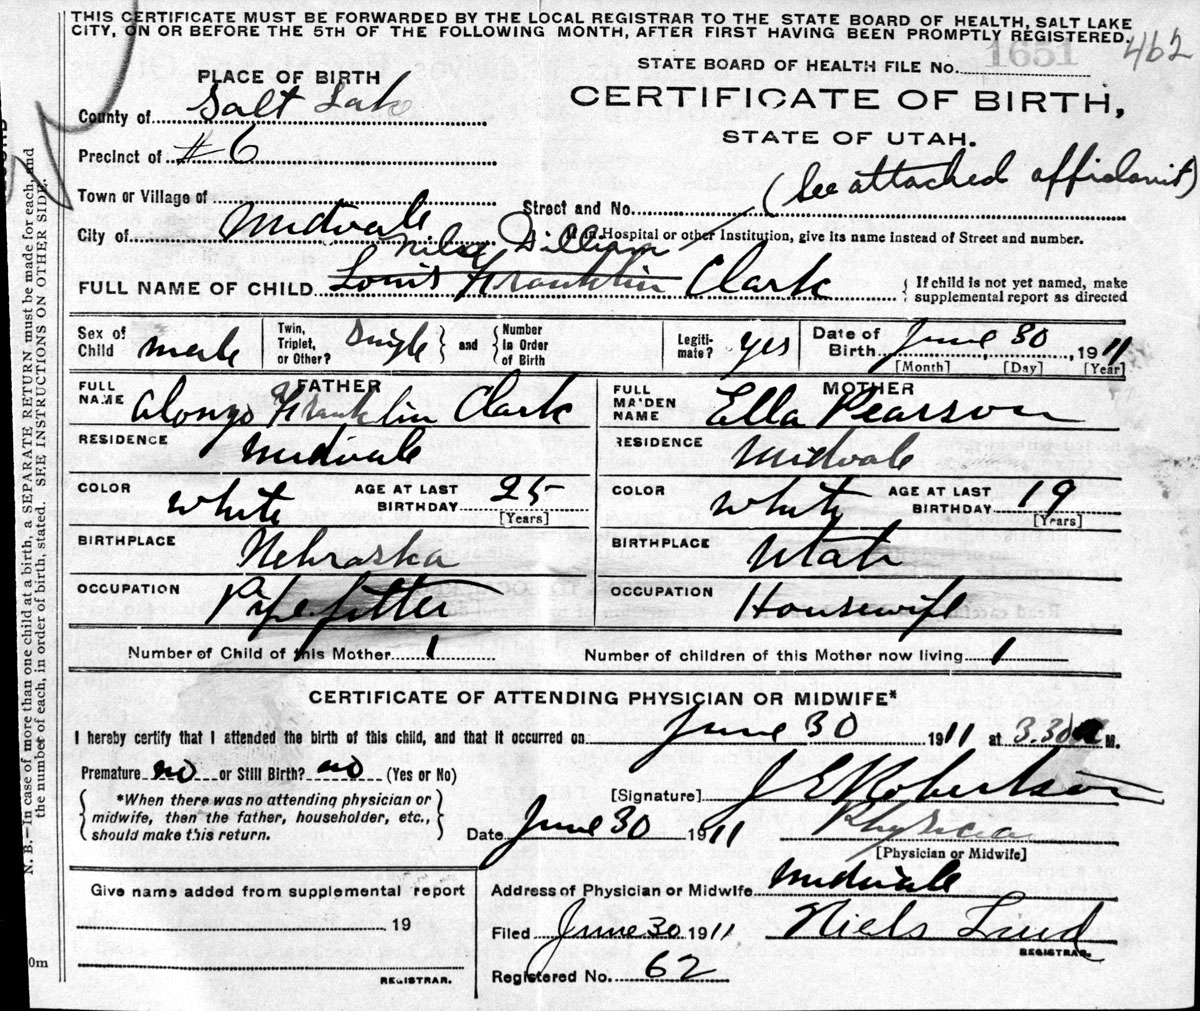 THIS CERTIFICATE MUST BE FORWARDED BY THE LOCAL REGISTRAR TO THE STATE BOARD OF HEALTH, SALT LAKE
CITY, ON OR BEFORE THE 5TH OF THE FOLLOWING MONTH, AFTER FIRST HAVING BEEN PROMPTLY REGISTERED.
462
PLACE OF BIRTH
STATE BOARD OF HEALTH FILE No. 1651
County of Salt Lake
CERTIFICATE OF BIRTH,
STATE OF UTAH.
Precinct of #6
(See attached affidavit)
Town or Village of
Street and No.
City of Midvale
If in Hospital or other Institution, give its name instead of Street and number.
William
FULL NAME OF CHILD Louis Franklin Clark
If child is not yet named, make
supplemental report as directed
Sex of Child male
Twin, Triplet, or Other? Single
and
Number In Order of Birth
Legiti-mate? yes
Date of Birth June 30, 1911
[Month] [Day] [Year]
FATHER
FULL NAME Alonzo Franklin Clark
RESIDENCE Midvale
COLOR White
AGE AT LAST BIRTHDAY 25
[Years]
BIRTHPLACE Nebraska
OCCUPATION Pipefitter
MOTHER
FULL MAIDEN NAME Ella Pearson
RESIDENCE Midvale
COLOR White
AGE AT LAST BIRTHDAY 19
[Years]
BIRTHPLACE Utah
OCCUPATION Housewife
Number of Child of this Mother 1
Number of children of this Mother now living 1
CERTIFICATE OF ATTENDING PHYSICIAN OR MIDWIFE*
I hereby certify that I attended the birth of this child, and that it occurred on June 30 1911 at 3.30 M.
Premature no or Still Birth? no (Yes or No)
*When there was no attending physician or
midwife, then the father, householder, etc.,
should make this return.
[Signature] J E Robertson
Date June 30 1911
Physician
[Physician or Midwife]
Give name added from supplemental report
19
REGISTRAR.
Address of Physician or Midwife Midvale
Filed June 30 1911
Niels Lind
REGISTRAR.
Registered No. 62
N. B.—In case of more than one child at a birth, a SEPARATE RETURN must be made for each, and
the number of each, in order of birth, stated. SEE INSTRUCTIONS ON OTHER SIDE.
0m